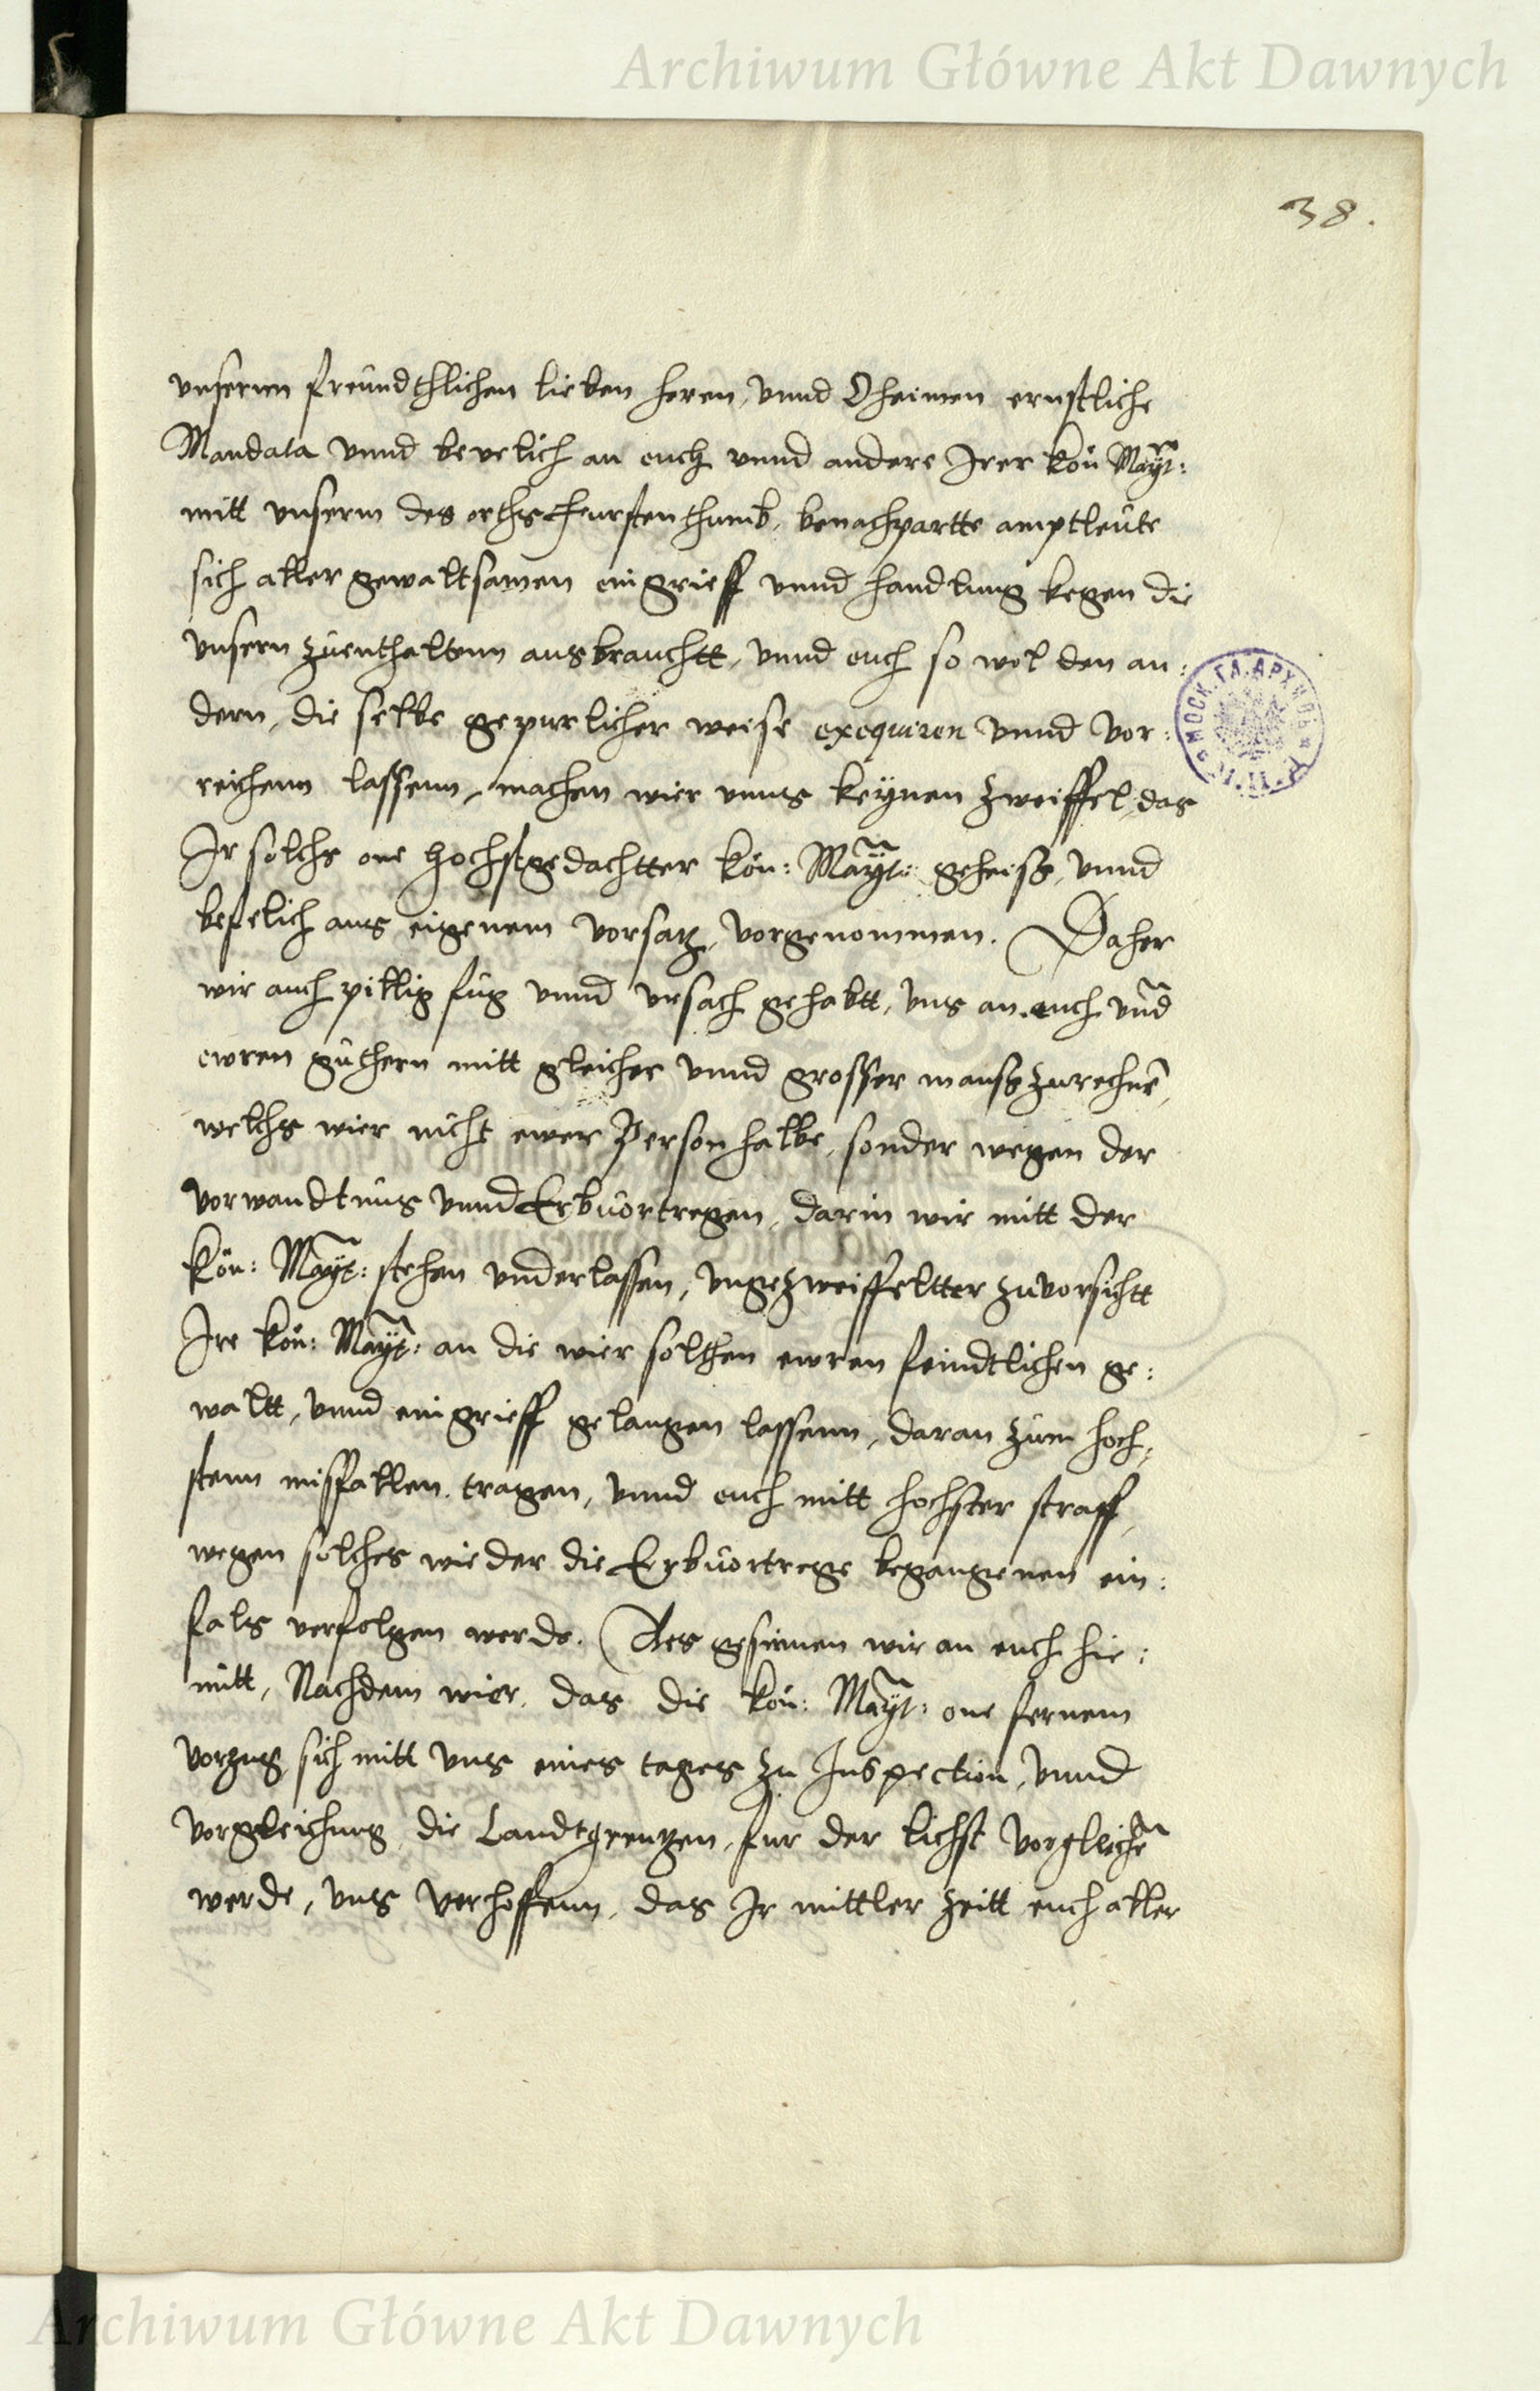 Archiwum Główne Akt Dawnych
38.
unserm freundthlichen lieben heren, unnd Oheimen ernstliche
Mandata unnd bevelich an euch unnd andere Irer Kön Mayt:
mitt unserm des orths Furstenthumb, benachpartte amptleute
sich aller gewaltsamen eingrieff unnd handlung kegen die
unsern zuenthaltenn ausbrauchtt, unnd euch so wol den an:
dern, die selbe gepurlicher weise exequiren unnd vor:
reichenn lassenn, machen wier unns keynen zweiffel, das
Ir solchs one hochstgedachtter Kön: Mayt: geheiss, unnd
befelich aus eigenem vorsatz, vorgenommen. Daher
wir auch pillig fug unnd ursach gehabtt, uns an euch und
ewren guthern mitt gleicher unnd grosser mauss zurechnē,
welchs wier nicht ewer Person halbe, sonder wegen der
vorwandtnus unnd Erbvortregen, darin wir mitt der
Kön: Mayt: stehen underlassen, ungezweiffeltter zuvorsichtt
Ire Kön: Mayt: an die wier solchen ewren feindtlichen ge:
waltt, unnd eingrieff gelangen lassenn, daran zum hoch:
stenn misfallen tragen, unnd euch mitt hochster straff,
wegen solches wieder die Erbvortrege begangenen ein:
fals verfolgen werde. Des gesinnen wir an euch hie:
mitt, Nachdem wier, das die Kön: Mayt: one fernern
vorzug sich mitt uns eines tages zu Inspection, unnd
vorgleichung die Landtgrentzen, furderlichst vorgleichē
werde, uns verhoffenn, das Ir mittler zeitt euch aller
МОСК. ГЛ. АРХИВЪ
Archiwum Główne Akt Dawnych